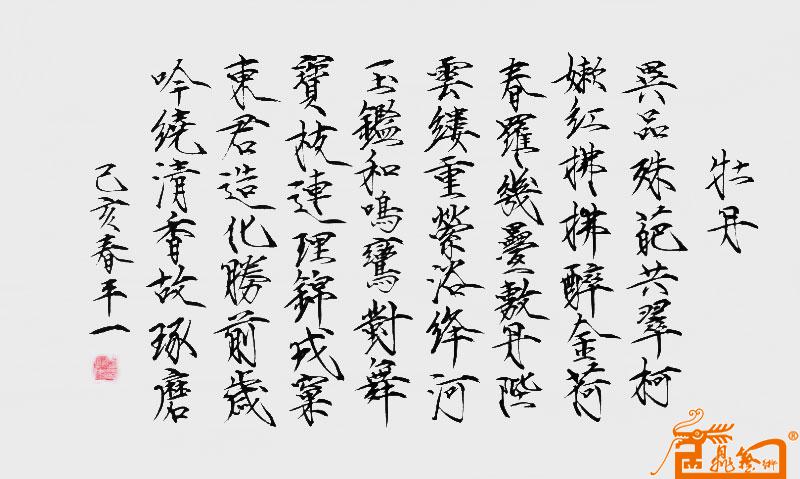 牡丹
異品殊葩共翠柯
嫩紅拂拂醉金荷
春羅幾疊敷丹陛
雲縷重縈浴絳河
玉鑑和鳴鸞對舞
寶枝連理錦成窠
東君造化勝前歲
吟繞清香故琢磨
己亥春平一